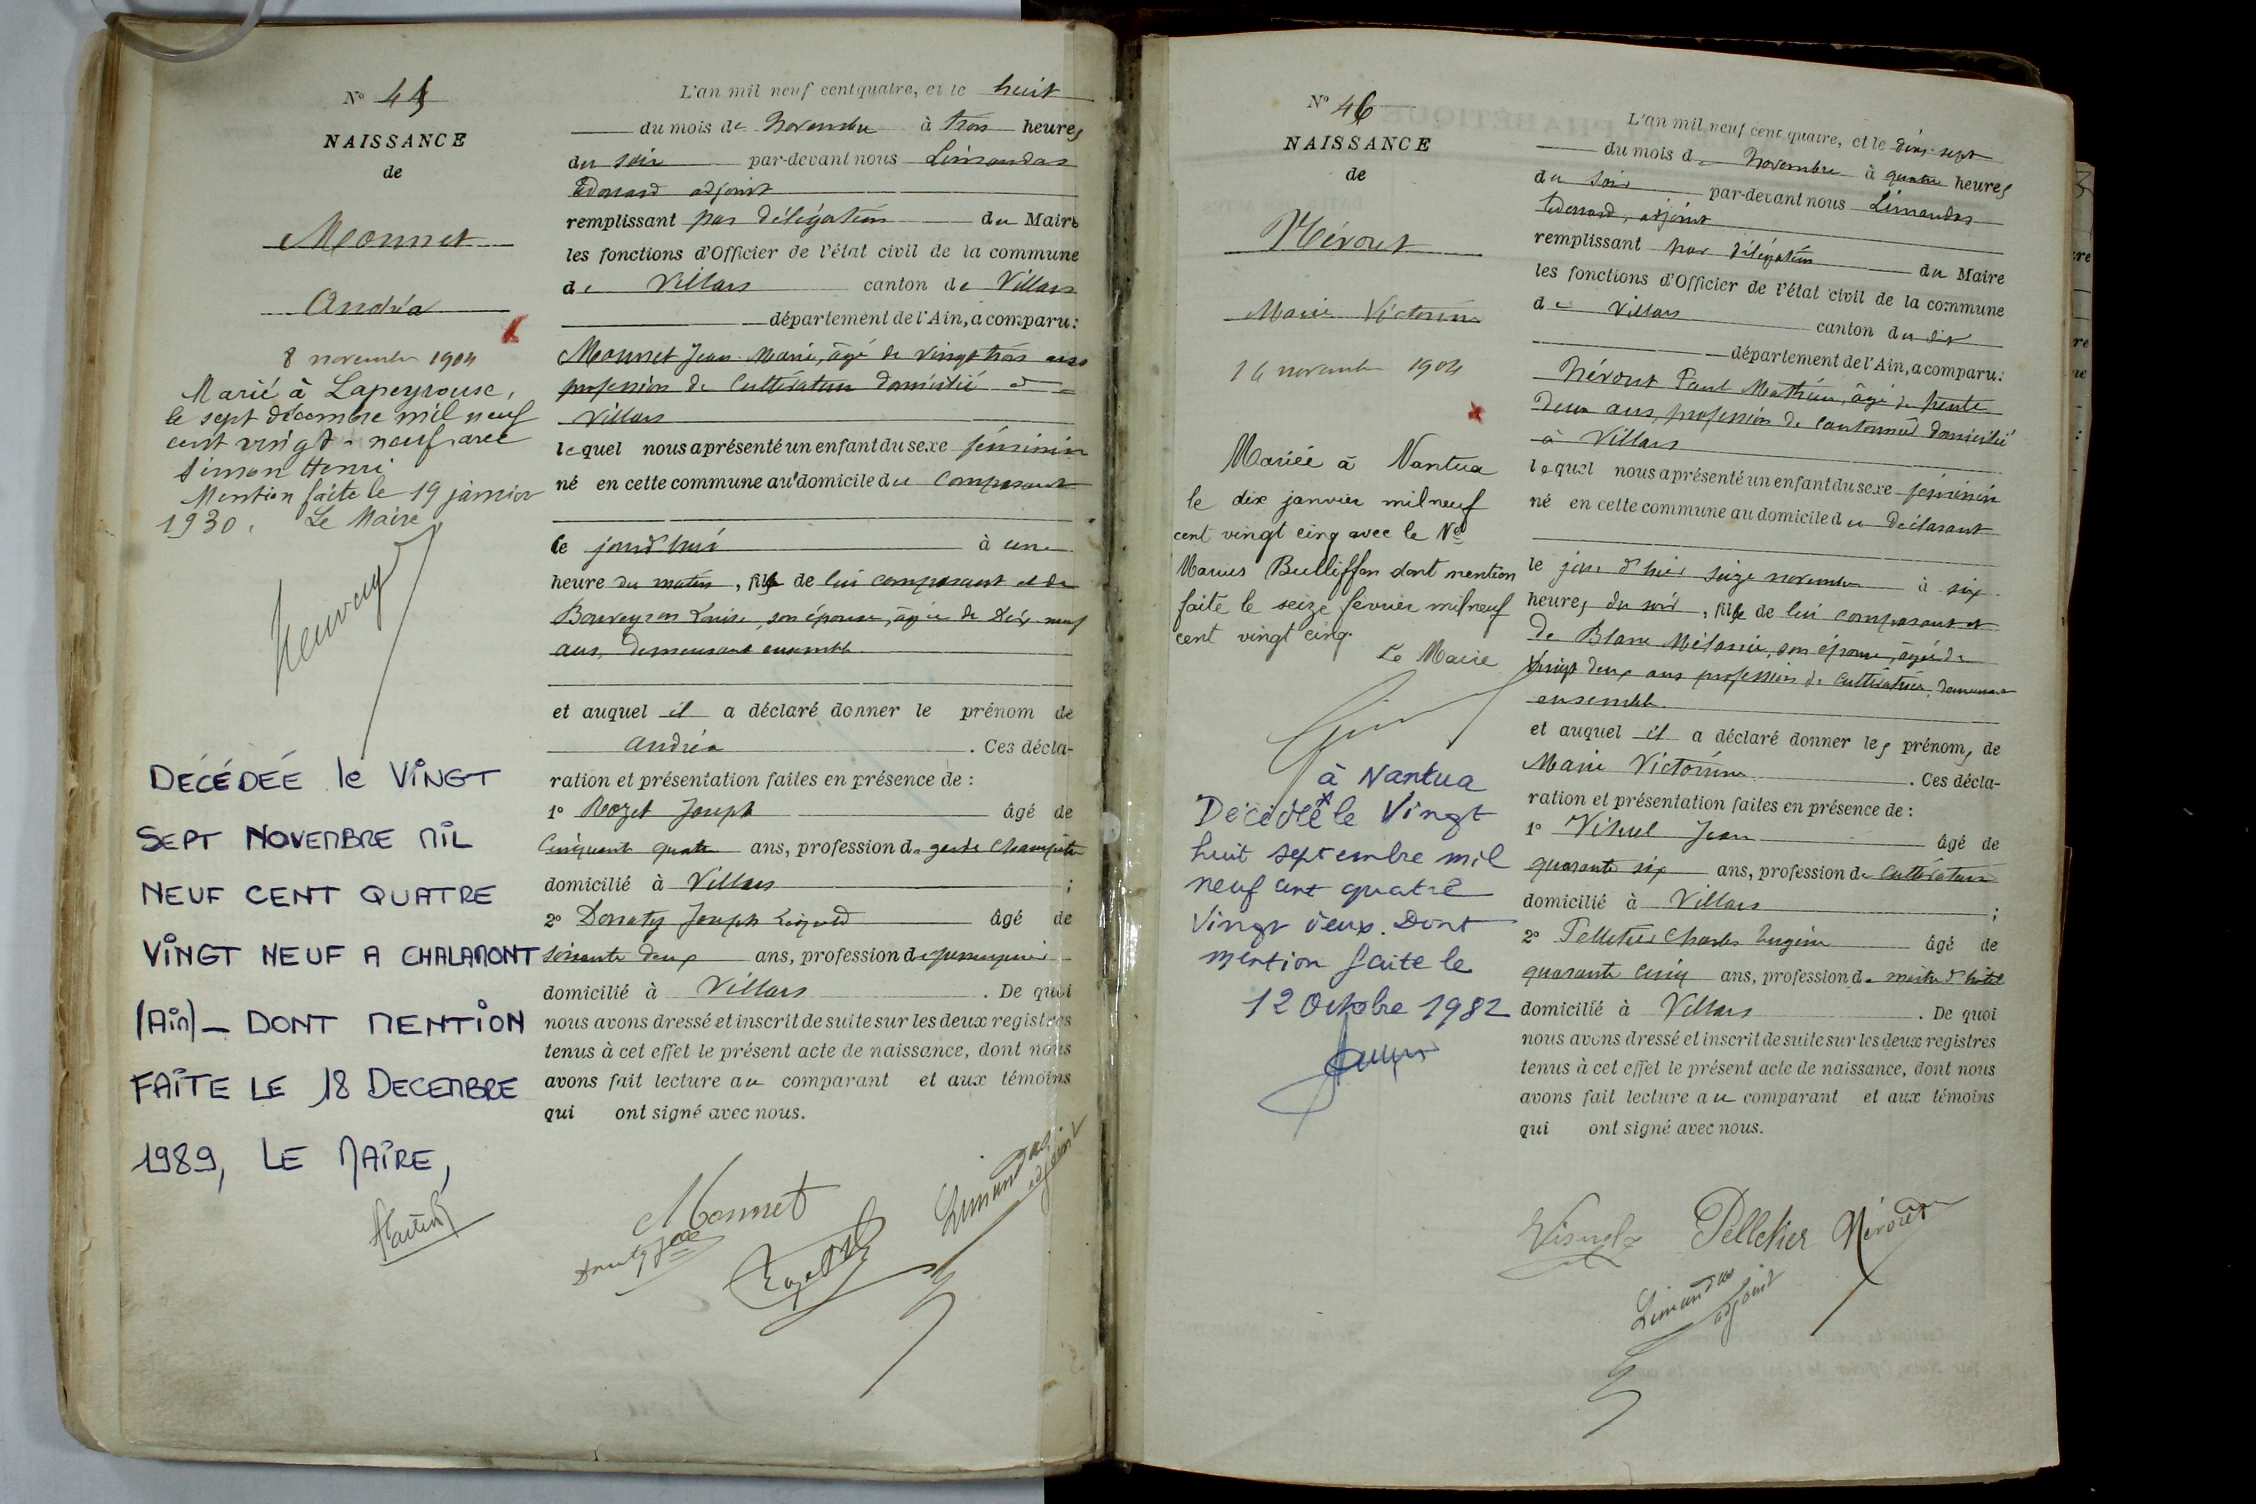 N° 45
NAISSANCE
de
Monnet
Andréa
8 novembre 1904
Marié à Lapeyrouse,
le sept décembre mil neuf
cent vingt-neuf avec
Simon Henri
Mention faite le 19 janvier
1930. Le Maire
DÉCÉDÉE le VINGT
SEPT NOVEMBRE MIL
NEUF CENT QUATRE
VINGT NEUF A CHALAMONT
(Ain) _ DONT MENTION
FAITE LE 18 DECEMBRE
1989, LE MAIRE,
L'an mil neuf cent quatre, et le huit
du mois de Novembre à trois heures
du soir par-devant nous Limandas
Edouard adjoint
remplissant par délégation du Maire
les fonctions d'Officier de l'état civil de la commune
de Villars canton de Villars
département de l'Ain, a comparu :
Monnet Jean Marie, âgé de vingt trois ans
profession de Cultivateur domicilié à
Villars
lequel nous a présenté un enfant du sexe féminin
né en cette commune au domicile du Comparant
le jourd'hui à une
heure du matin, fille de lui comparant et de
Bouveyron Louise, son épouse, âgée de dix neuf
ans, demeurant ensemble
et auquel il a déclaré donner le prénom de
Andréa . Ces décla-
ration et présentation faites en présence de :
1° Rozet Joseph âgé de
Cinquante quatre ans, profession de garde Champêtre
domicilié à Villars ;
2° Donaty Joseph âgé de
soixante deux ans, profession de
domicilié à Villars . De quoi
nous avons dressé et inscrit de suite sur les deux registres
tenus à cet effet le présent acte de naissance, dont nous
avons fait lecture au comparant et aux témoins
qui ont signé avec nous.
Monnet
Limandas
adjoint
N° 46
NAISSANCE
de
Nérout
Marie Victorine
16 novembre 1904
Mariée à Nantua
le dix janvier mil neuf
cent vingt cinq avec le Né
Marius Bulliffon dont mention
faite le seize fevrier mil neuf
cent vingt cinq.
Le Maire
à Nantua
Décédée * le Vingt
huit septembre mil
neuf cent quatre
Vingt deux. Dont
mention faite le
12 Octobre 1982
L'an mil neuf cent quatre, et le dix-sept
du mois de Novembre à quatre heures
du soir par-devant nous Limandas
Edouard, adjoint
remplissant par délégation du Maire
les fonctions d'Officier de l'état civil de la commune
de Villars canton du dit
département de l'Ain, a comparu :
Nérout Paul Mathieu, âgé de trente
deux ans, profession de Cantonnier domicilié
à Villars
lequel nous a présenté un enfant du sexe féminin
né en cette commune au domicile du déclarant
le jour d'hier seize novembre à six
heures du soir, fille de lui comparant et
de Blanc Mélanie, son épouse, âgée de
vingt deux ans profession de Cultivatrice, demeurant
ensemble.
et auquel il a déclaré donner les prénoms de
Marie Victorine . Ces décla-
ration et présentation faites en présence de :
1° Jean âgé de
quarante six ans, profession de Cultivateur
domicilié à Villars ;
2° Pelletier Charles Eugène âgé de
quarante cinq ans, profession de maître d'hôtel
domicilié à Villars . De quoi
nous avons dressé et inscrit de suite sur les deux registres
tenus à cet effet le présent acte de naissance, dont nous
avons fait lecture au comparant et aux témoins
qui ont signé avec nous.
Pelletier Nérout
Limandas
adjoint